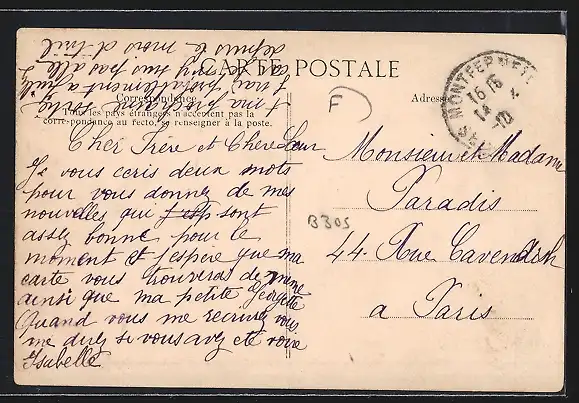 CARTE POSTALE
Correspondance
Tous les pays étrangers n'acceptent pas la
corre-pondance au recto, se renseigner à la poste.
Adresse
MONTFERMEIL
16 15
14 4
10
F
B305
Cher Frère et Chere Sœur
Je vous ecris deux mots
pour vous donner de mes
nouvelles que sont
assez bonne pour le
moment et j'espère que ma
carte vous trouveras de même
ainsi que ma petite Georgette
Quand vous me recrirez vous
me direz si vous avez eté voire
Isabelle
parfaitement
suis pas allé
depuis le mois d'avril
Monsieur et Madame
Paradis
44. Rue Cavendish
a Paris